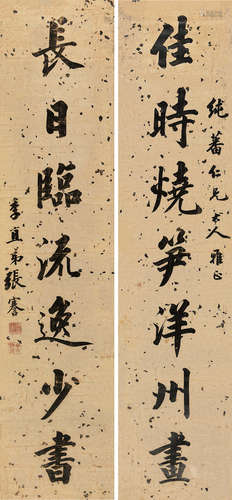 純蕃仁兄大人雅正
佳時燒笋洋州畫
長日臨流逸少書
季直弟張謇